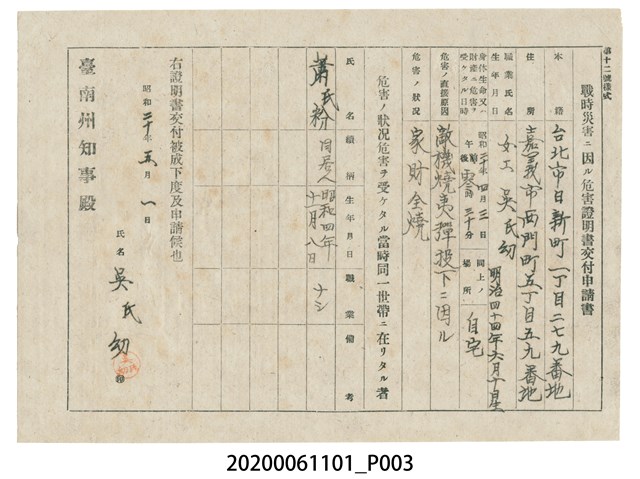 第十二號樣式
戰時災害ニ因ル危害證明書交付申請書
本籍 台北市日新町一丁目二七九番地
住所 嘉義市西門町五丁目五九番地
職業氏名 女工 吳氏幼
生年月日 明治四十四年六月十日生
身体生命又ハ財產ニ危害ヲ受ケタル日時 昭和二十年四月三日 午後零時三十分 同上ノ場所 自宅
危害ノ直接原因 敵機燒夷彈投下ニ因ル
危害ノ狀況 家財全燒
危害ノ狀況危害ヲ受ケタル當時同一世帶ニ在リタル者
氏名 續柄 生年月日 職業 備考
蕭氏粉 同居人 昭和四年十一月八日 ナシ
右證明書交付被成下度及申請候也
昭和二十年五月一日
氏名 吳氏幼 ㊞
臺南州知事殿
20200061101_P003